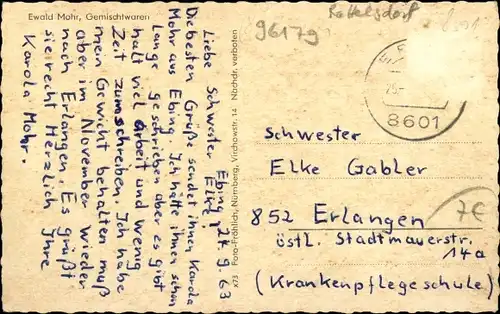 Ewald Mohr, Gemischtwaren
Ebing, 24. 9. 63
Liebe Schwester Elke!
Die besten Grüße sendet ihnen Karola
Mohr aus Ebing. Ich hätte ihnen schon
lange geschrieben aber es gibt
halt viel Arbeit und wenig
Zeit zum schreiben. Ich habe
mein Gewicht behalten muß
aber im November wieder
nach Erlangen. Es grüßt
sie recht Herzlich Ihre
Karola Mohr.
X73 Foto-Fröhlich, Nürnberg, Virchowstr. 14 Nachdr. verboten
96179
Rattelsdorf
8601
Schwester
Elke Gabler
852 Erlangen
östl. Stadtmauerstr.
14a
(Krankenpflegeschule)
7€